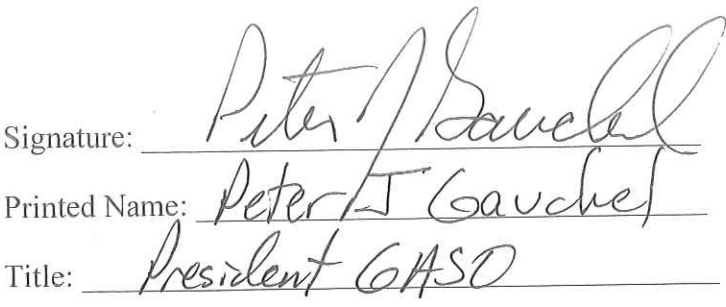 Signature: Peter J Gauchel
Printed Name: Peter J Gauchel
Title: President GASO